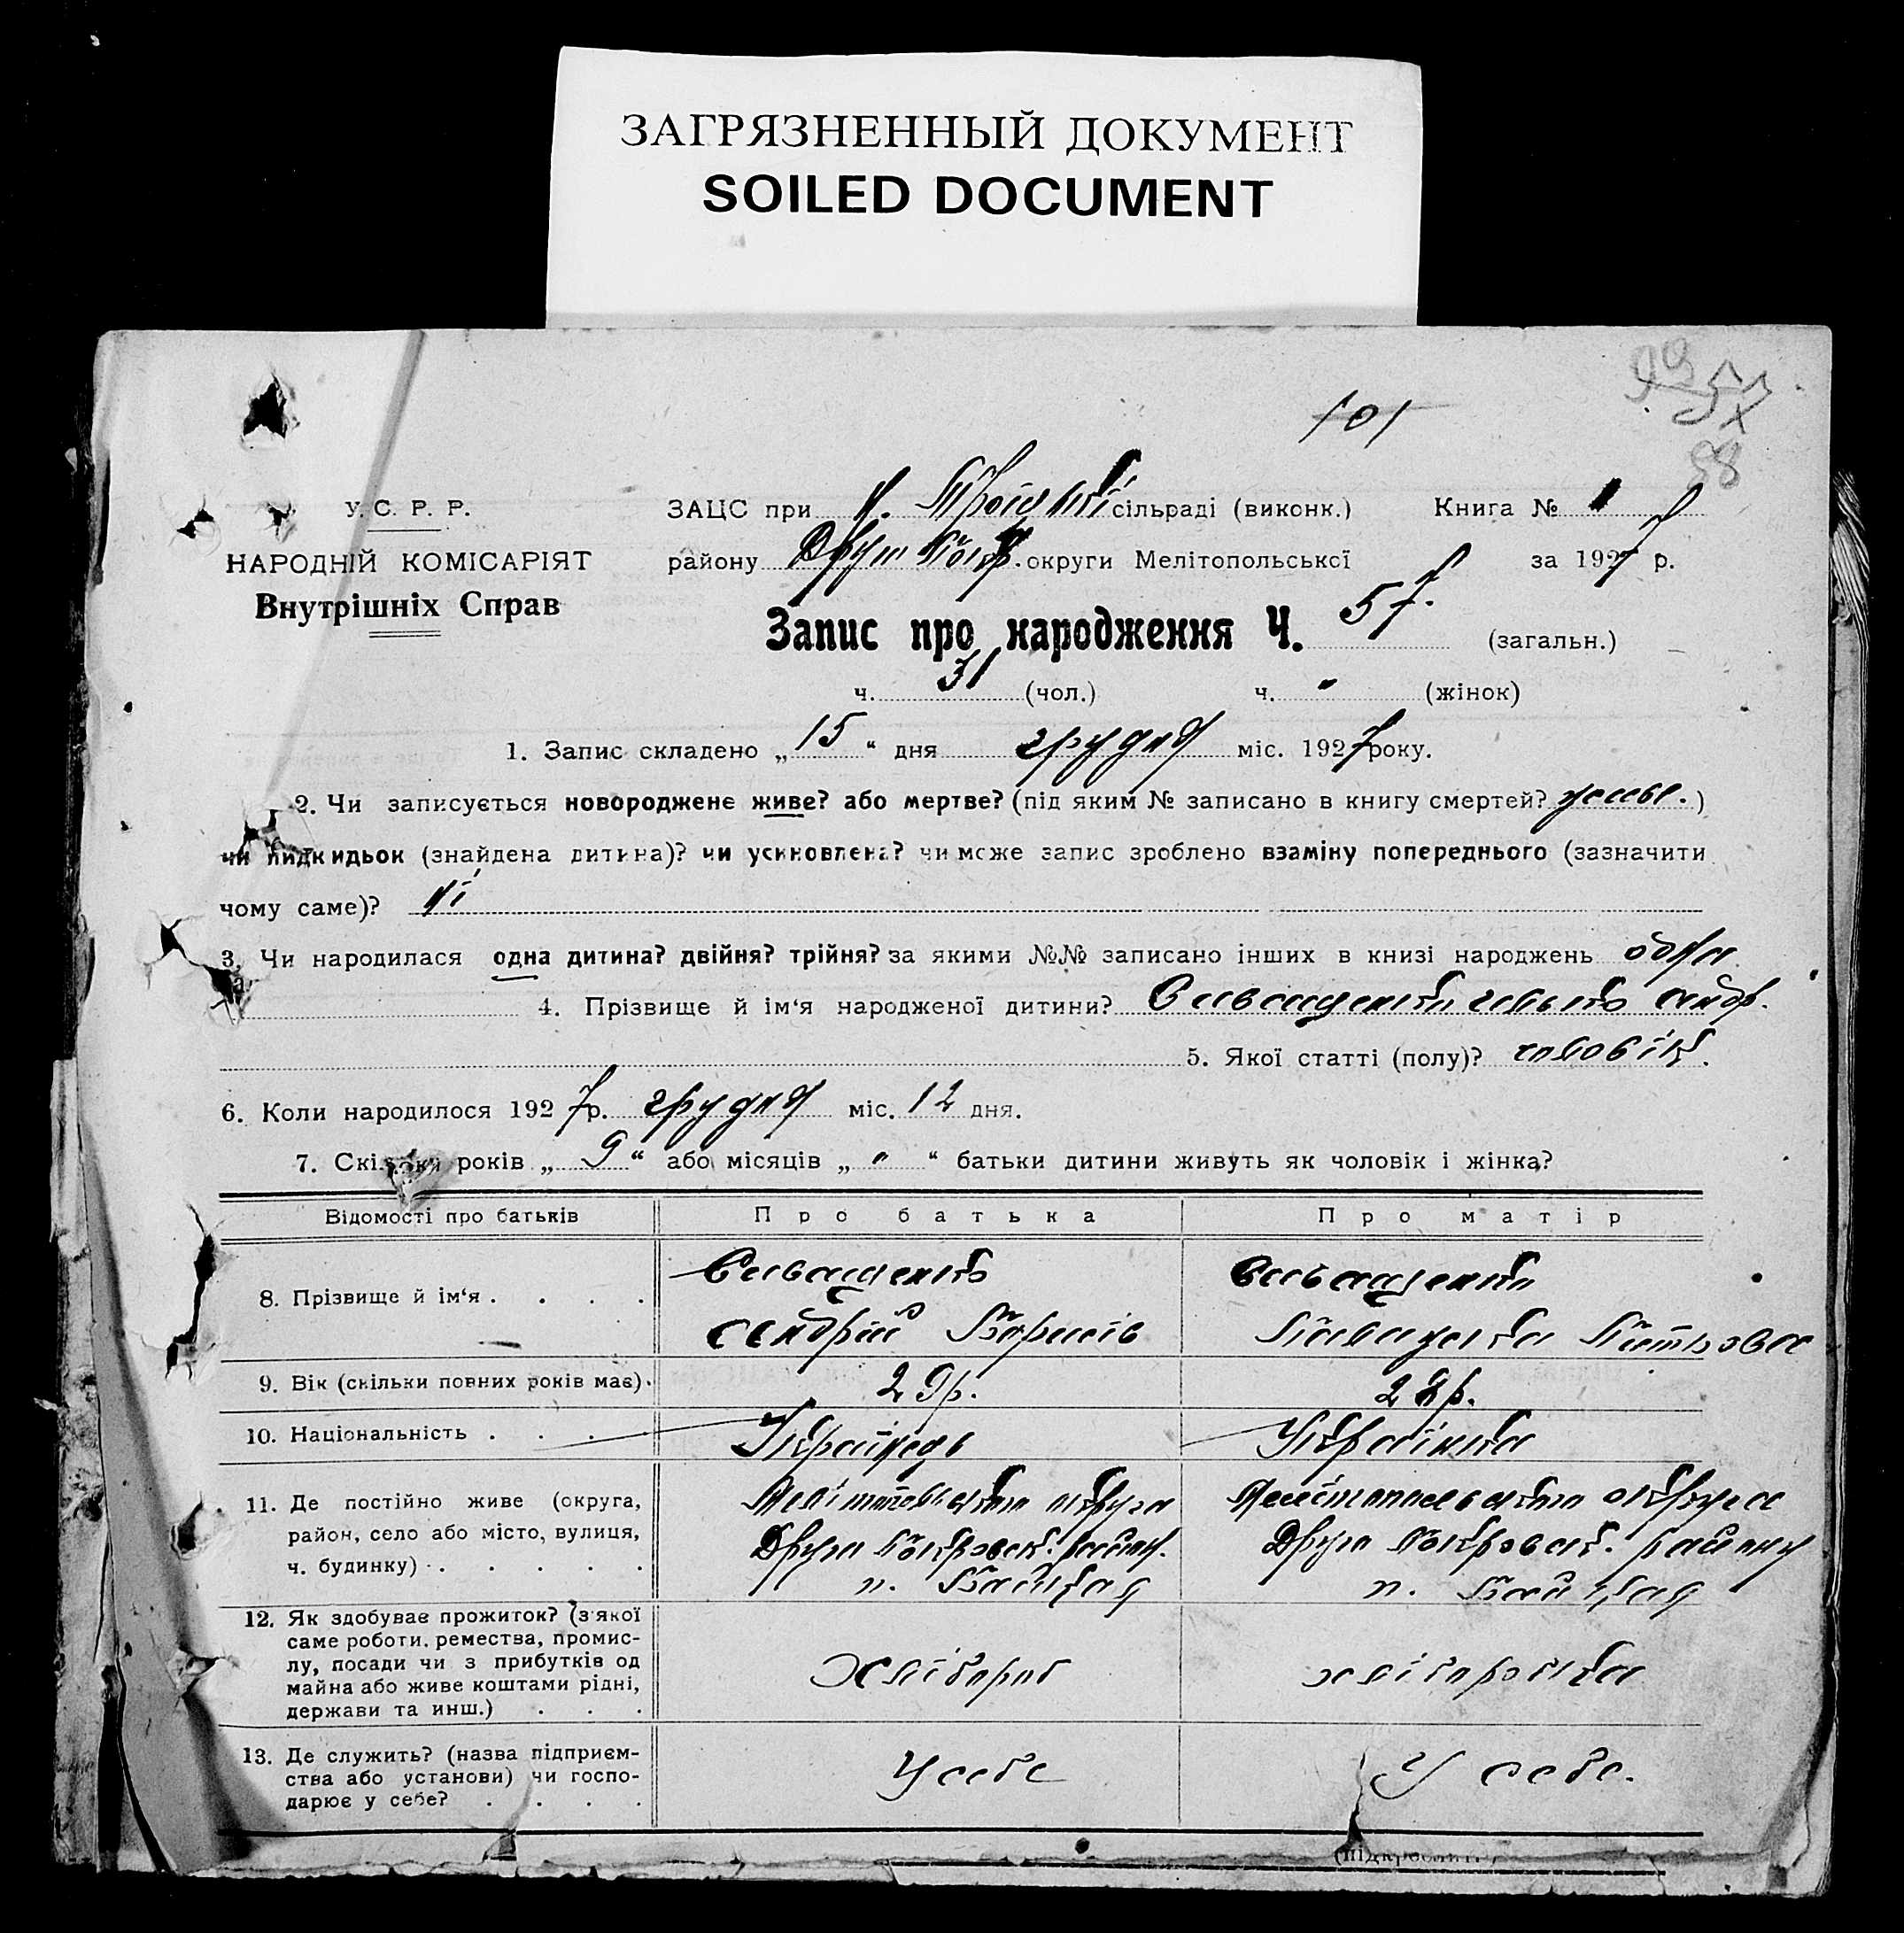 ЗАГРЯЗНЕННЫЙ ДОКУМЕНТ
SOILED DOCUMENT
101
58
У. С. Р. Р.
НАРОДНІЙ КОМІСАРІЯТ
Внутрішніх Справ
ЗАЦС при Н. Троїцькій сільраді (виконк.) Книга № 1
району Друго Покр. округи Мелітопольської за 1927 р.
Запис про народження Ч. 57. (загальн.)
ч. 31 (чол.) ч. " (жінок)
1. Запис складено „ 15 “ дня грудня міс. 1927 року.
2. Чи записується новороджене живе? або мертве? (під яким № записано в книгу смертей? живе.)
чи підкидьок (знайдена дитина)? чи усиновлена? чи може запис зроблено взаміну попереднього (зазначити
чому саме)? ні
3. Чи народилася одна дитина? двійня? трійня? за якими №№ записано інших в книзі народжень одна
4. Прізвище й ім‘я народженої дитини? андр.
5. Якої статті (полу)? чоловік.
6. Коли народилося 1927 р. грудня міс. 12 дня.
7. Скільки років „ 9 “ або місяців „ " “ батьки дитини живуть як чоловік і жінка?
Відомості про батьків Про батька Про матір
8. Прізвище й ім‘я . . . .
Сиващенко
андрій Борисів
Сиващенко
Петрова
9. Вік (скільки повних років має). 29р. 28р.
10. Національність . . . . Українець Українка
11. Де постійно живе (округа,
район, село або місто, вулиця,
ч. будинку) . . . . .
Мелітопольська округа
Друго Покровськ. району.
п.
Мелітопольська округа
Друго Покровськ. району
п.
12. Як здобуває прожиток? (з якої
саме роботи, ремества, промис-
лу, посади чи з прибутків од
майна або живе коштами рідні,
держави та инш.) . . .
хлібороб
хліборобка
13. Де служить? (назва підприєм-
ства або установи) чи госпо-
дарює у себе? . . . .
У себе
У себе.
(підкреслити)